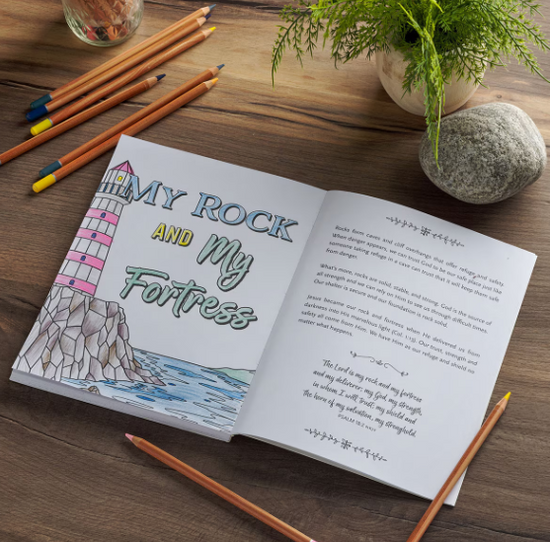 MY ROCK
AND My
Fortress
Rocks form caves and cliff overhangs that offer refuge and safety.
When danger appears, we can trust God to be our safe place just like
someone taking refuge in a cave can trust that it will keep them safe
from danger.
What's more, rocks are solid, stable, and strong. God is the source of
all strength and we can rely on Him to see us through difficult times.
Our shelter is secure and our foundation is rock solid.
Jesus became our rock and fortress when He delivered us from
darkness into His marvelous light (Col. 1:13). Our trust, strength and
safety all come from Him. We have Him as our refuge and should no
matter what happens.
The Lord is my rock and my fortress
and my deliverer; my God, my strength,
in whom I will trust; my shield and
the horn of my salvation, my stronghold.
PSALM 18:2 NKJV